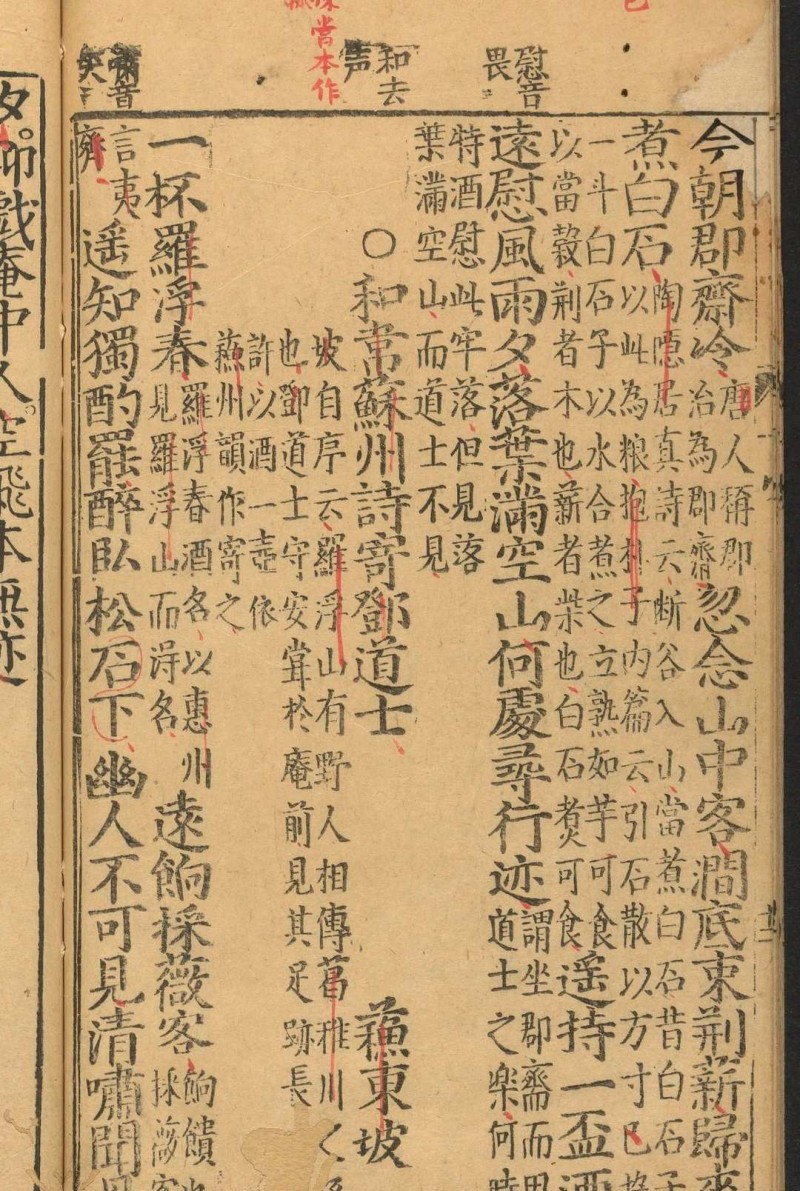 慰音
畏
和去
声
當本作
嘯音
笑
今朝郡齋冷唐人稱郡治為郡齋忽念山中客澗底束荆薪歸來
煮白石陶隱居真詩云断谷入山當煮白石昔白石子
以此為粮抱朴子内篇云引石散以方寸匕
一斗白石子以水合煮之立熟如芋可食
以當穀荆者木也薪者柴也白石煮可食遥持一盃酒
遠慰風雨夕落葉滿空山何處尋行迹謂坐郡齋而思
道士之樂何時
特酒慰此牢落但見落
葉滿空山而道士不見
○和韋蘇州詩寄鄧道士 蘓東坡
坡自序云羅浮山有野人相傳葛稚川之
也鄧道士守安甞於庵前見其足跡長
許以酒一壺依
蘓州韻作寄之
一杯羅浮春羅浮春酒名以惠州見羅浮山而淂名遠餉採薇客餉饋也採薇客
言夷齊遥知獨酌罷醉臥松石下幽人不可見清嘯聞月
夕。聊戲庵中人。空飛本無迹